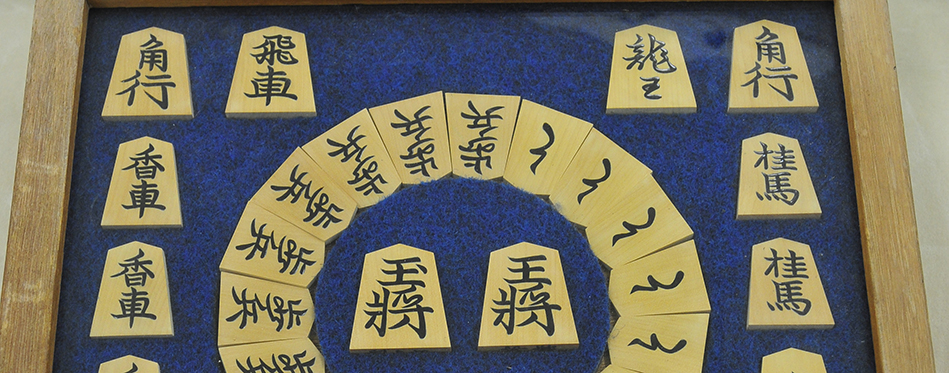 角行
飛車
龍王
角行
歩兵
歩兵
歩兵
歩兵
歩兵
歩兵
と
と
と
と
と
香車
桂馬
香車
桂馬
玉將
玉將